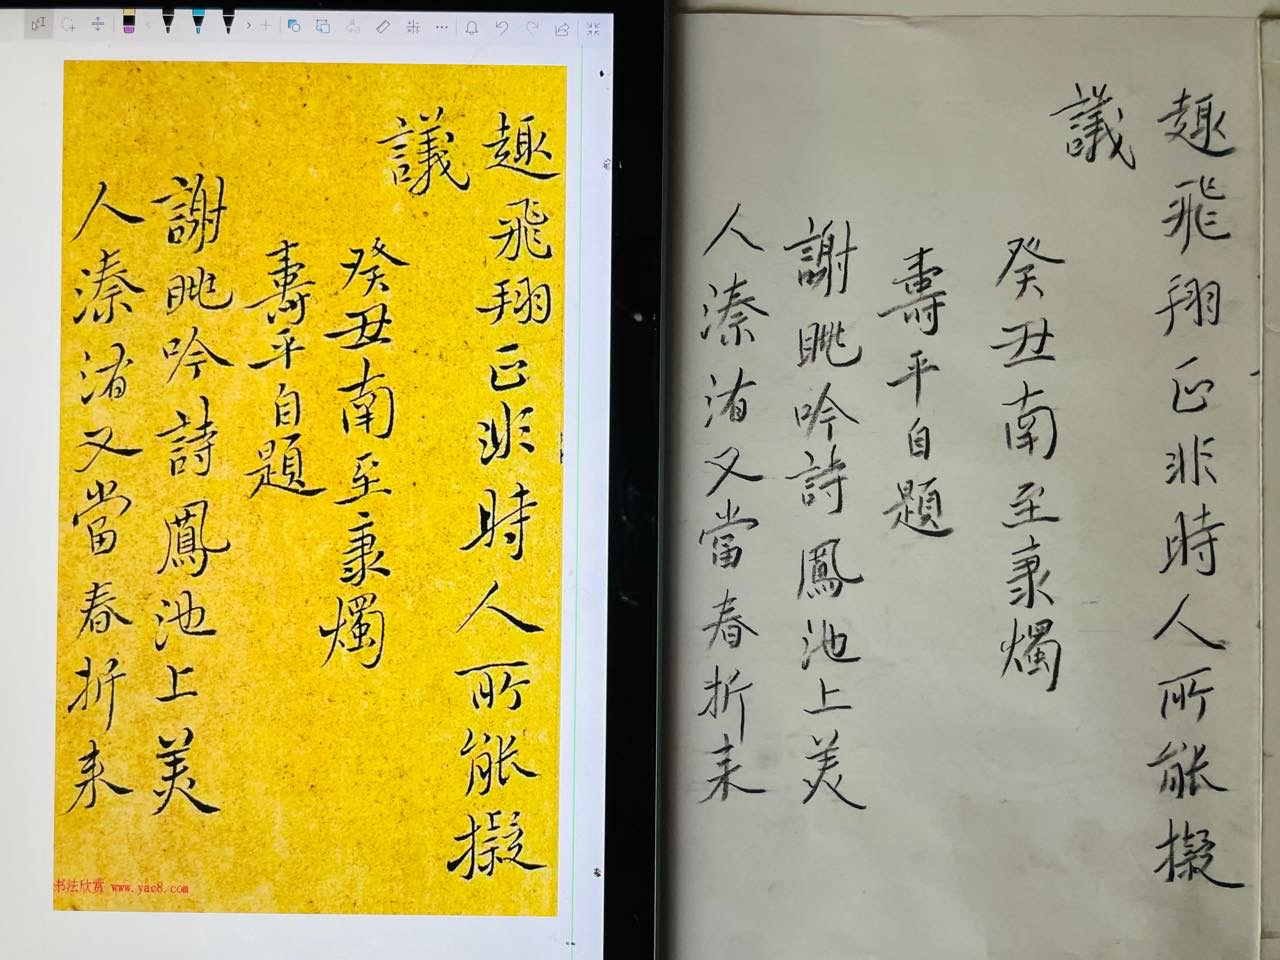 趣飛翔正非時人所能擬
議
癸丑南至秉燭
壽平自題
謝眺吟詩鳳池上美
人溱洧又當春折来
书法欣赏 www.yac8.com
趣飛翔正非時人所能擬
議
癸丑南至秉燭
壽平自題
謝眺吟詩鳳池上美
人溱洧又當春折来